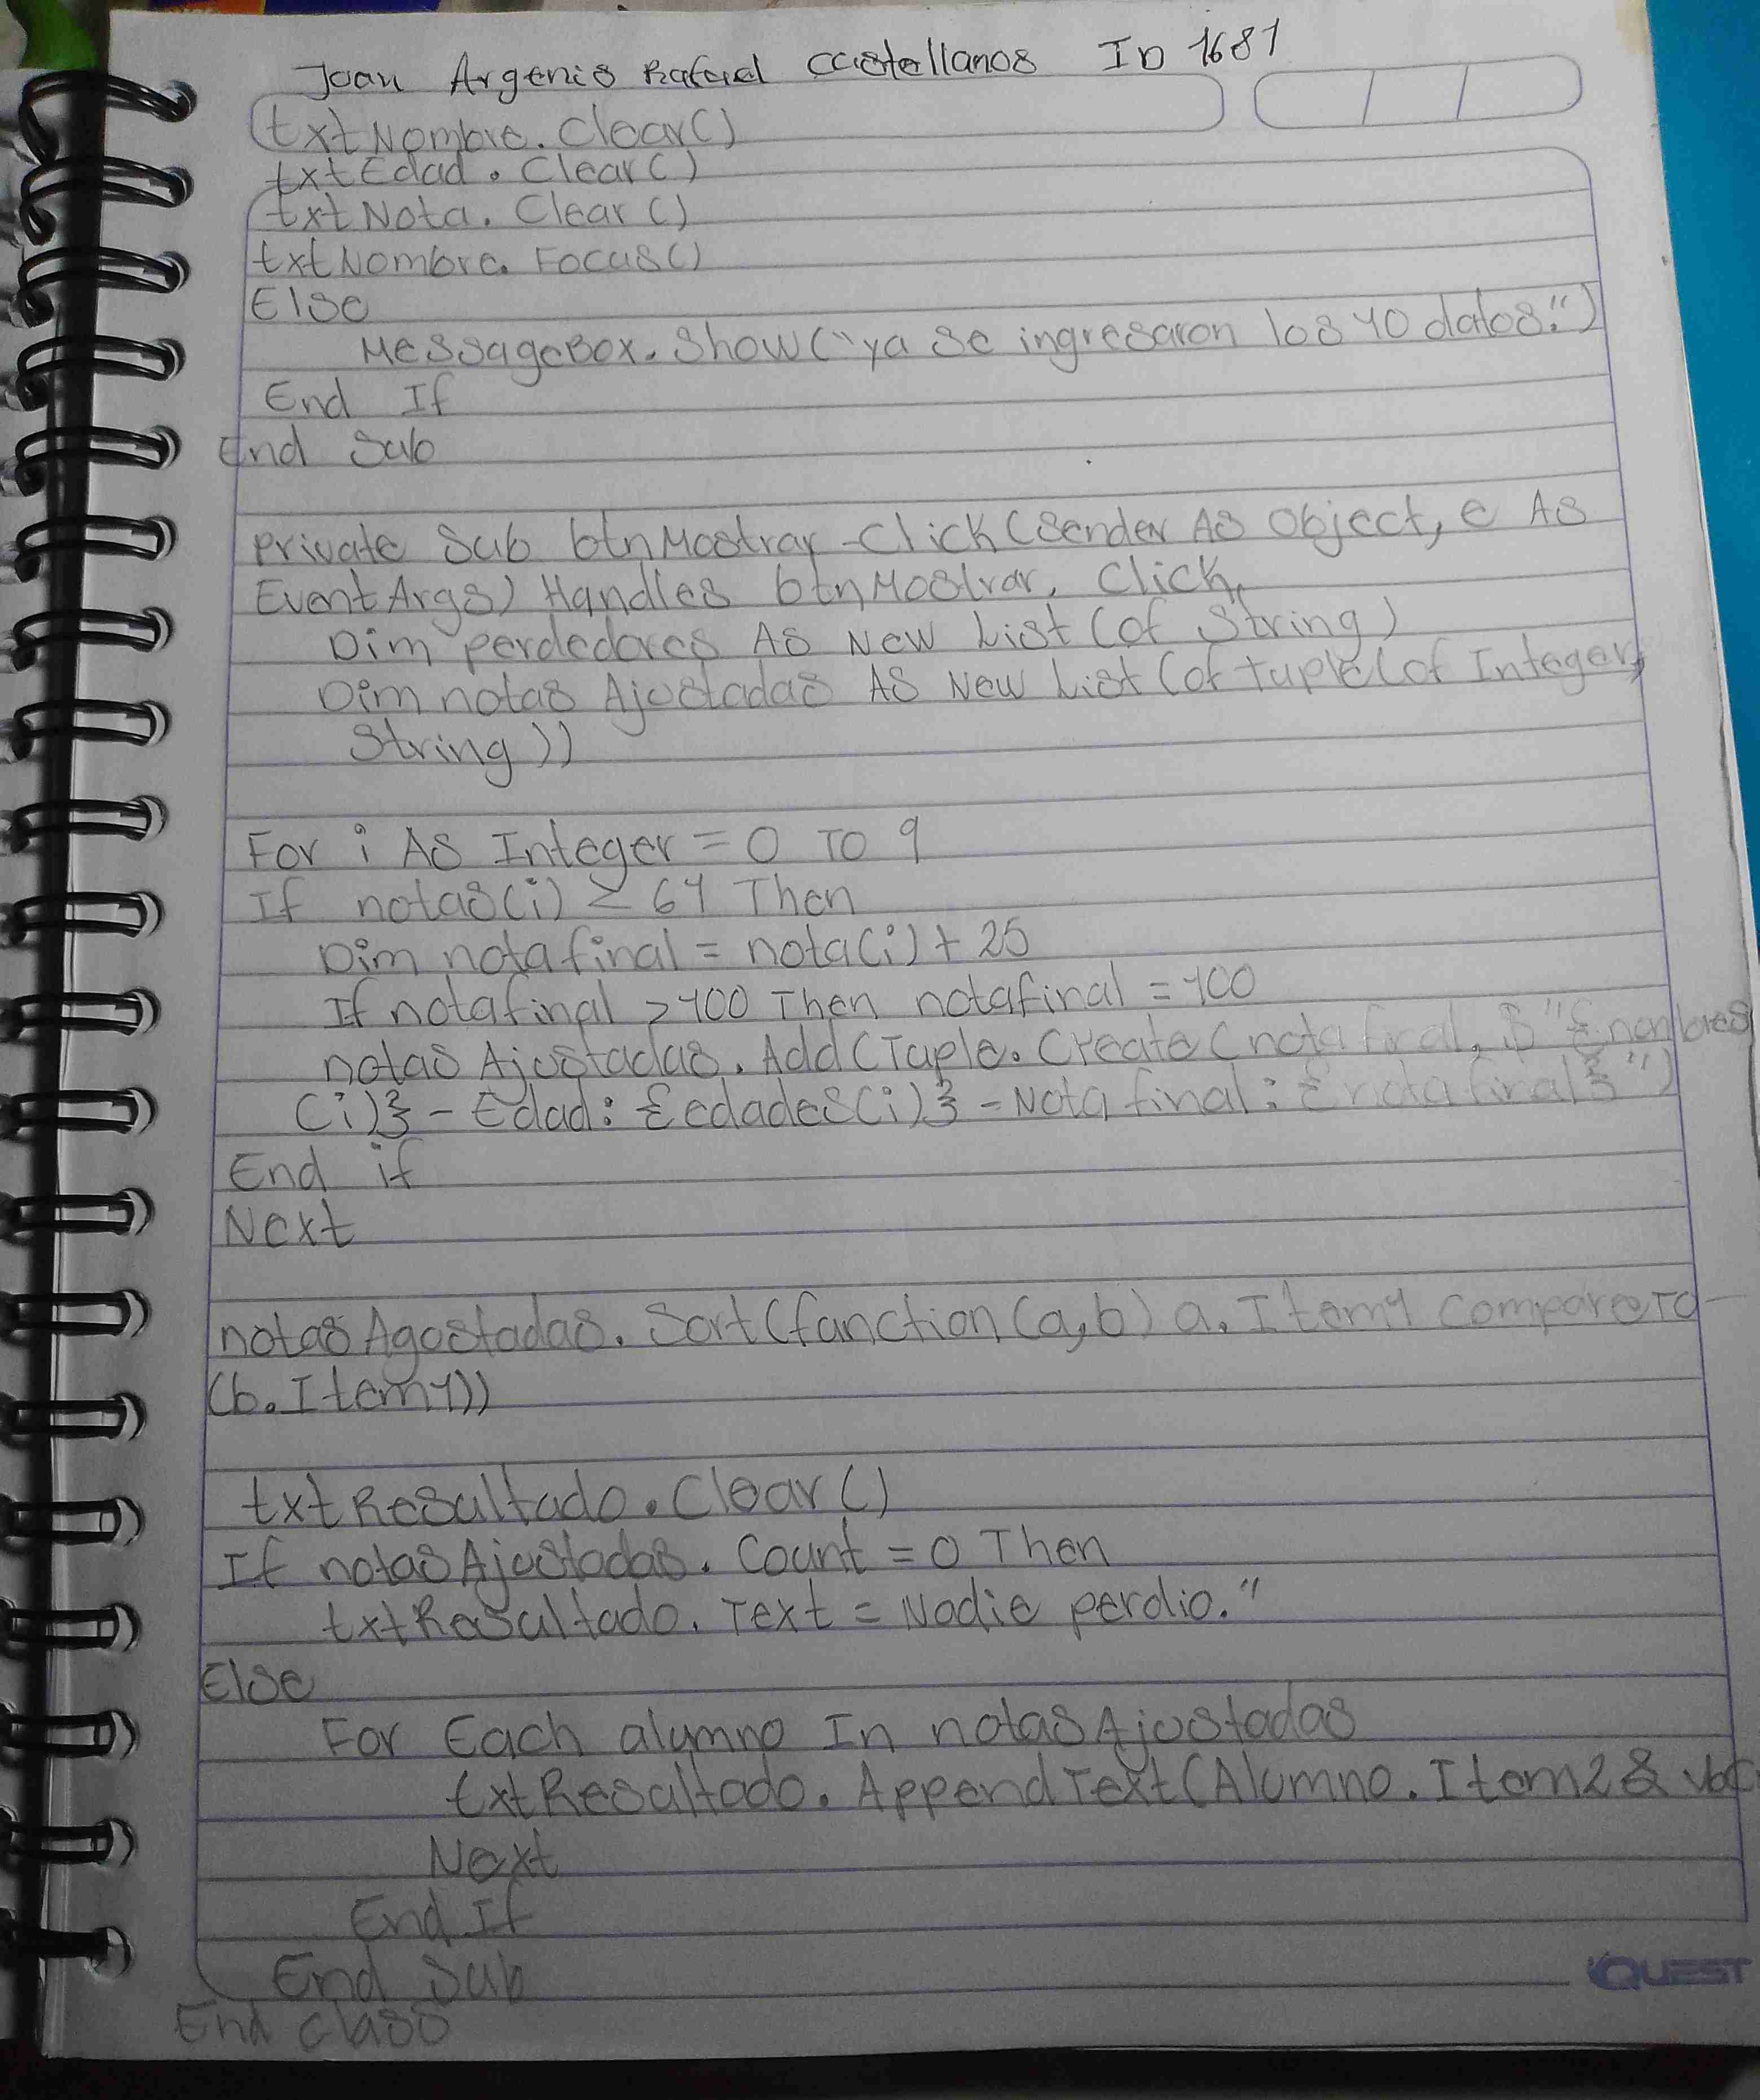 Joan Argenis Rafael Castellanos ID 1681
txtNombre.Clear()
txtEdad.Clear()
txtNota.Clear()
txtNombre.Focus()
Else
MessageBox.Show("ya se ingresaron los 10 datos.")
End If
End Sub
Private Sub btnMostrar-Click(Sender As Object, e As
EventArgs) Handles btnMostrar.Click,
Dim perdedores As New List(of String)
Dim notas Ajustadas As New List(of Tuple(of Integer,
String))
For i As Integer = 0 To 9
If notas(i) < 61 Then
Dim notafinal = nota(i) + 25
If notafinal > 100 Then notafinal = 100
notas Ajustadas.Add(Tuple.Create(notafinal, $"{nombres
(i)} - Edad: {edades(i)} - Nota final: {notafinal}")
End if
Next
notasAgostadas.Sort(function(a,b) a.Item1 CompareTo-
(b.Item1))
txtResultado.Clear()
If notasAjustadas.Count = 0 Then
txtResultado.Text = Nadie perdio."
Else
For Each alumno In notasAjustadas
txtResultado.AppendText(Alumno.Item2 &
Next
End If
End Sub
End Class
QUEST